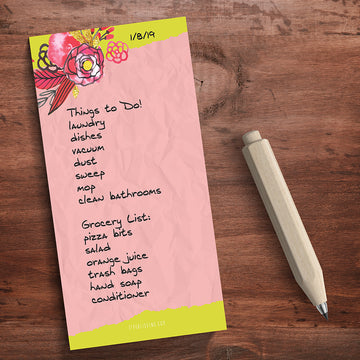 1/8/19
Things to Do!
laundry
dishes
vacuum
dust
sweep
mop
clean bathrooms
Grocery List:
pizza bits
salad
orange juice
trash bags
hand soap
conditioner